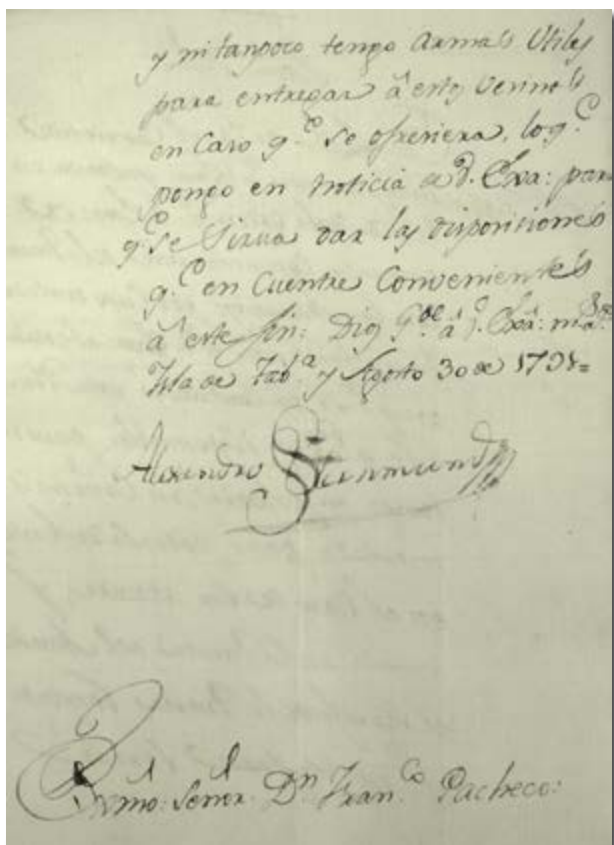 y ni tanpoco tengo armas Utiles
para entregar â estos Vecinos
en Caso q.e se ofresiera, lo q.e
pongo en noticia de V. Exa: para
q.e se Sirva dar las dispocitiones
q.e en Cuentre Convenientes
â este fin: Dios g.de â V. Exâ: m.s a.s
Ysla de Tab.a y Agosto 30 de 1798=
Alexandro
Exmo: Señor Dn Fran.co Pacheco: